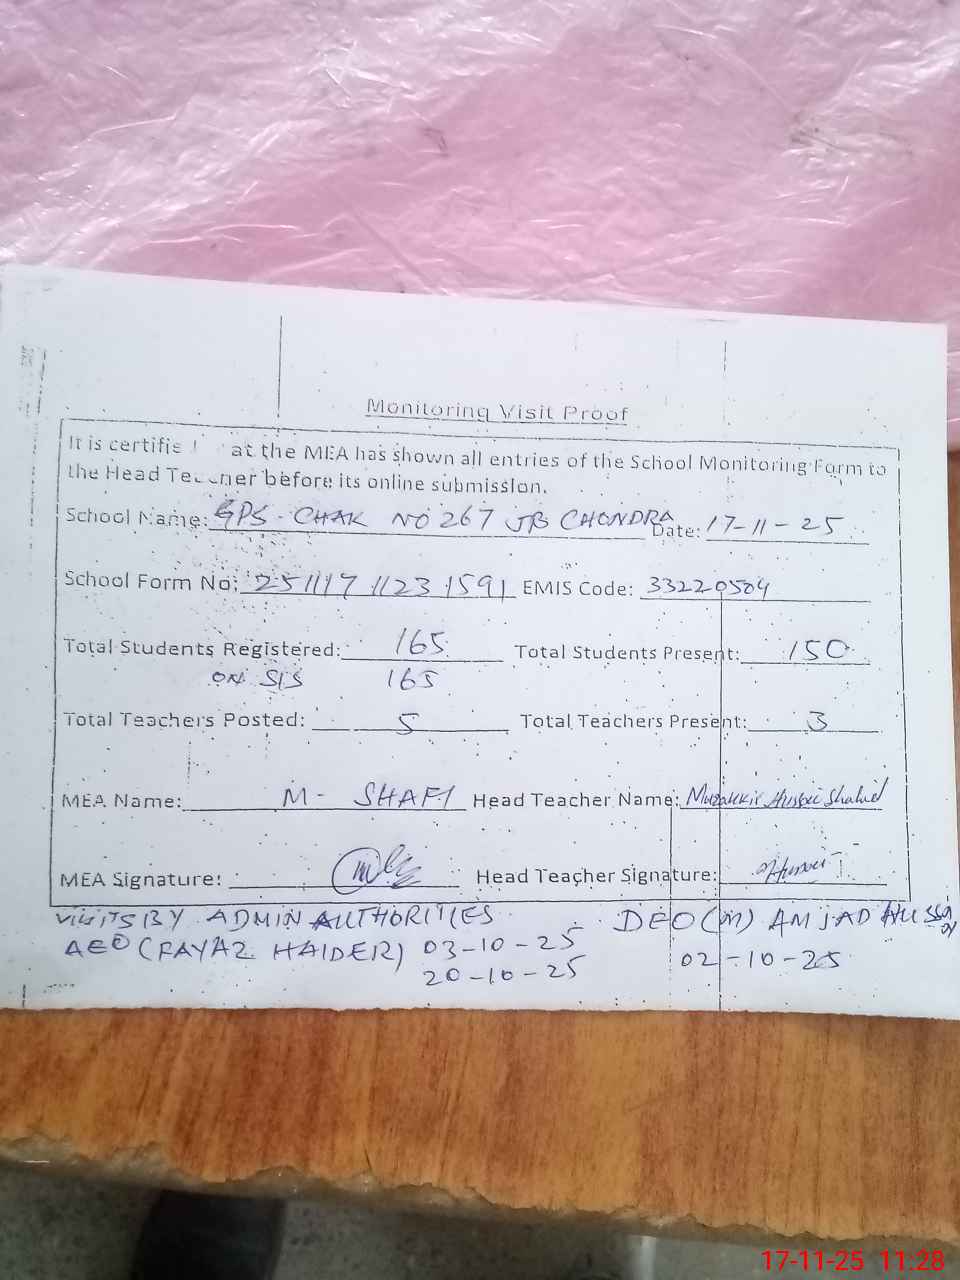 Monitoring Visit Proof
It is certifie at the MEA has shown all entries of the School Monitoring Form to
the Head Teacher before its online submission.
School Name: GPS - CHAK NO 267 JB CHONDRA Date: 17-11-25
School Form No: 251117 1123 1591 EMIS Code: 33220504
Total Students Registered: 165 Total Students Present: 150
ON SIS 165
Total Teachers Posted: 5 Total Teachers Present: 3
MEA Name: M- SHAFI Head Teacher Name: Muzakkir Hussain Shahid
MEA Signature: Head Teacher Signature:
VISITS BY ADMIN AUTHORITIES DEO(M) AMJAD HUSSAIN
AEO (FAYAZ HAIDER) 03-10-25 02-10-25
20-10-25
17-11-25 11:28